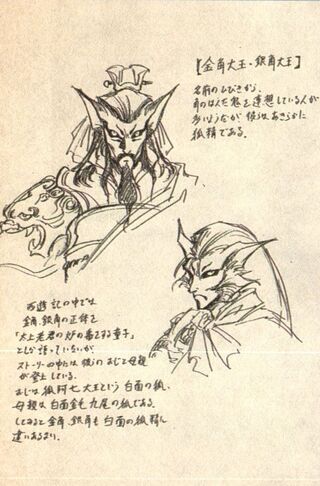 【金角大王・銀角大王】
名前のひびきから、
角のはえた鬼を連想している人が
多いようだが 彼らはあきらかに
狐精である。
西遊記の中では
金角、銀角の正体を
「太上老君の炉の番をする童子」
としか語っていないが、
ストーリーの中には彼らのおじと母親
が登場している。
おじは狐阿七大王という白面の狐、
母親は白面金毛九尾の狐である。
してみると金角、銀角も白面の狐精に
違いあるまい。